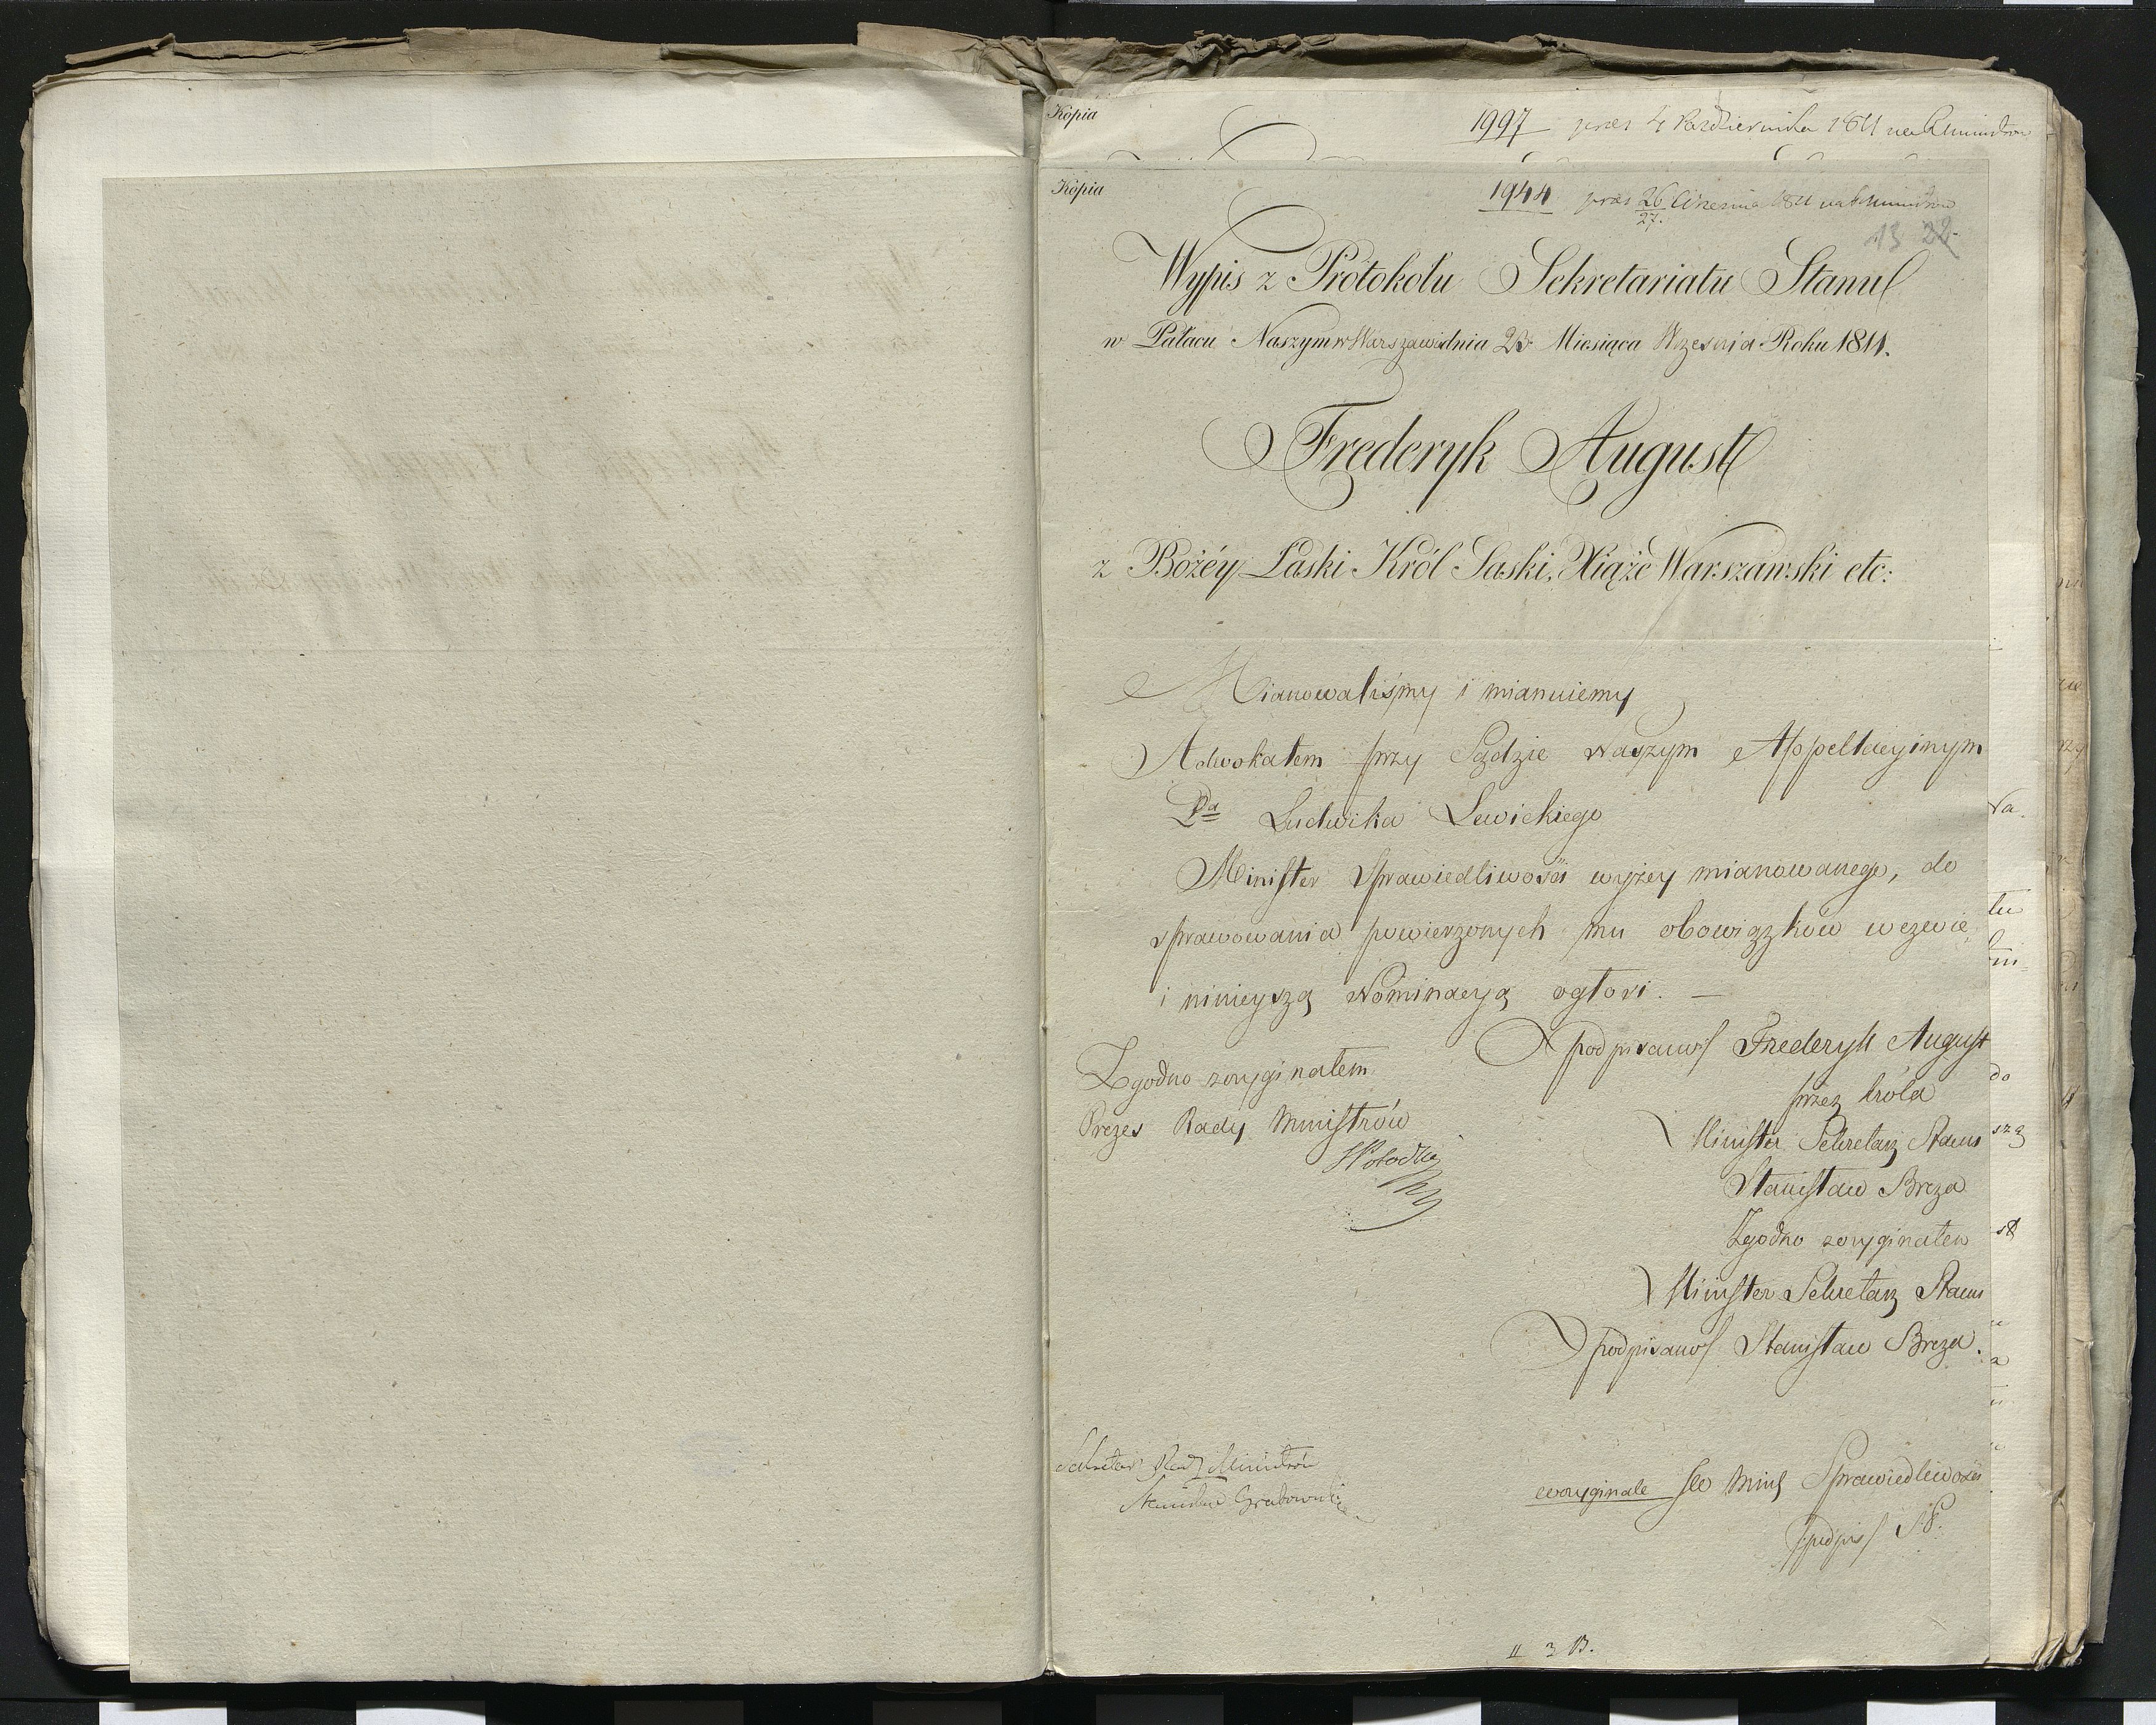 Kopia
1997 prez 4 Października 1811 na R Ministrow
Kopia
1944 prez 26/27 Września 1811 na R Ministrow
13 22
Wypis z Protokołu Sekretariatu Stanu
w Pałacu Naszym w Warszawie dnia 23 Miesiąca Września Roku 1811.
Frederyk August
z Bożéy Łaski Król Saski, Xiąże Warszawski etc:
Mianowaliśmy i mianuiemy
Adwokatem przy Sądzie naszym Appellacyinym
Pa Ludwika Lewickiego
Minister Sprawiedliwości wyżey mianowanego, do
sprawowania powierzonych mu obowiązków wezwie
i ninieyszą Nominacyą ogłosi. —
podpisano/ Frederyk August
przez króla
Minister Sekretarz Stanu
Stanisław Breza
Zgodno z oryginałem
Minister Sekretarz Stanu
podpisano/ Stanisław Breza.
Zgodno z oryginałem
Prezes Rady Ministrów
Sekretarz Rady Ministrów
Stanisław Grabowski
w oryginale do Mins Sprawiedliwości
/podpis/
II 3 B.